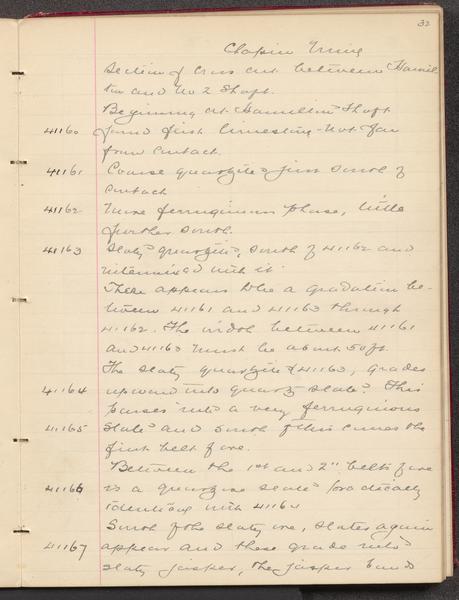 32
Chapin Mine
Section of Cross cut between Hamil
ton and No 2 Shaft.
Beginning at Hamilton Shaft
41160 found first limestone - Not far
from contact.
41161 Coarse quartzite just South of
contact
41162 More ferruginous phase, little
further South.
41163 Slaty quartzite, South of 41162 and
intermixed with it.
There appears to be a gradation be-
tween 41161 and 41163 through
41162. The width between 41161
and 41163 must be about 50 ft.
The slaty quartzite, 41163, grades
41164 upward into quartz slate. This
passes into a very ferruginous
41165 slate and South of this comes the
first belt of ore.
Between the 1st and 2" belts of ore
41166 is a quartzose slate practically
identical with 41164
South of the slaty ore, slates again
41167 appear and these grade into
slaty jasper, the jasper band